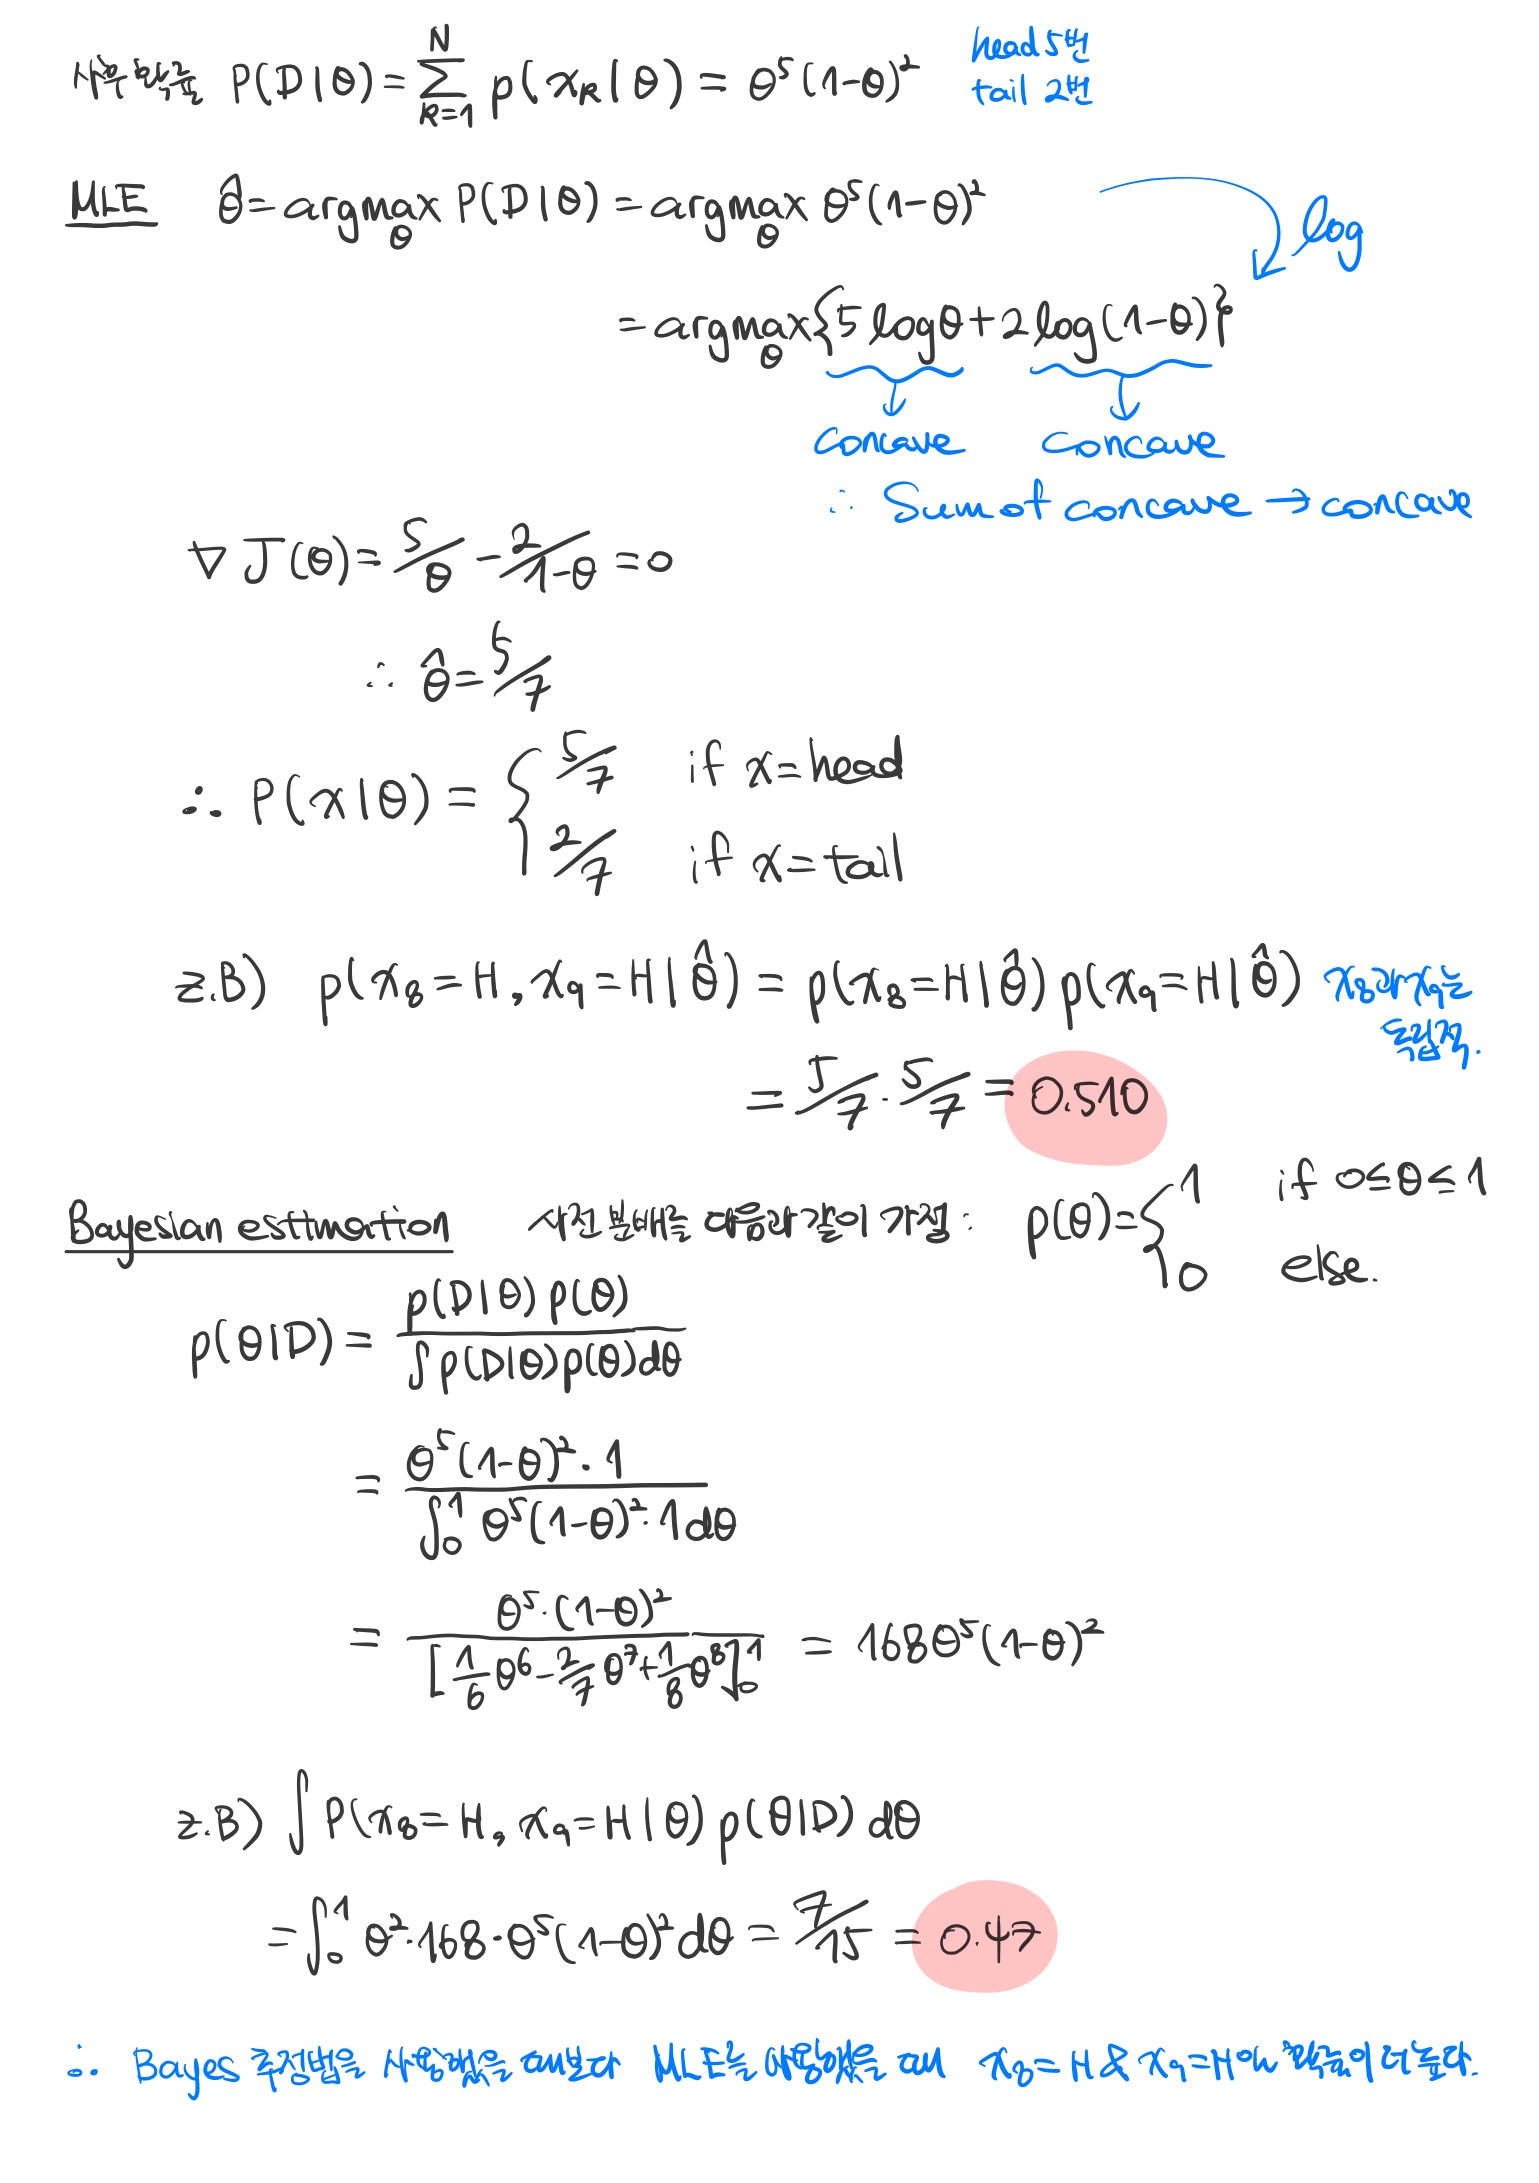 사후 확률 P(D|θ) = ∑_{k=1}^{N} p(x_k|θ) = θ⁵(1-θ)² head 5번
tail 2번
MLE θ̂ = argmax_θ P(D|θ) = argmax_θ θ⁵(1-θ)²
log
= argmax_θ {5 logθ + 2 log(1-θ)}
concave concave
∴ Sum of concave → concave
∇J(θ) = 5/θ - 2/1-θ = 0
∴ θ̂ = 5/7
∴ P(x|θ) = { 5/7 if x = head
2/7 if x = tail
z.B) p(x₈=H, x₉=H|θ̂) = p(x₈=H|θ̂) p(x₉=H|θ̂) x₈과 x₉는
독립적.
= 5/7 · 5/7 = 0.510
Bayesian estimation 사전 분배를 다음과 같이 가정: p(θ) = { 1 if 0≤θ≤1
0 else.
p(θ|D) = p(D|θ)p(θ) / ∫p(D|θ)p(θ)dθ
= θ⁵(1-θ)²·1 / ∫₀¹ θ⁵(1-θ)²·1dθ
= θ⁵·(1-θ)² / [1/6 θ⁶ - 2/7 θ⁷ + 1/8 θ⁸]₀¹ = 168θ⁵(1-θ)²
z.B) ∫P(x₈=H, x₉=H|θ) p(θ|D) dθ
= ∫₀¹ θ²·168·θ⁵(1-θ)²dθ = 7/15 = 0.47
∴ Bayes 추정법을 사용했을 때보다 MLE를 사용했을 때 x₈=H & x₉=H일 확률이 더 높다.